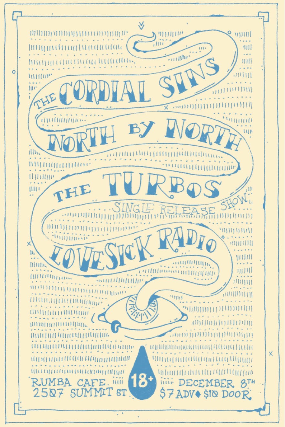 THE CORDIAL SINS
NORTH BY NORTH
THE TURBOS
SINGLE RELEASE SHOW
LOVESICK RADIO
RUMBA CAFE
2507 SUMMIT ST
18+
DECEMBER 8TH
$7 ADV $10 DOOR